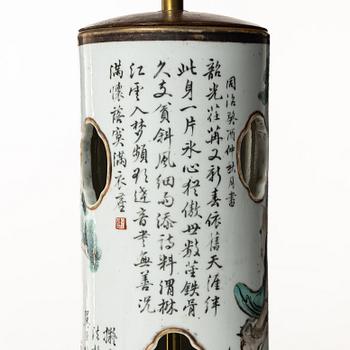 同治癸酉仲秋月書
韶光荏苒又新春依舊天涯絆
此身一片冰心猶傲世數莖鐵骨
久支貧斜風細雨添詩料渭樹
江雲入夢頻形遠音書無善况
滿懷落寞滿衣塵